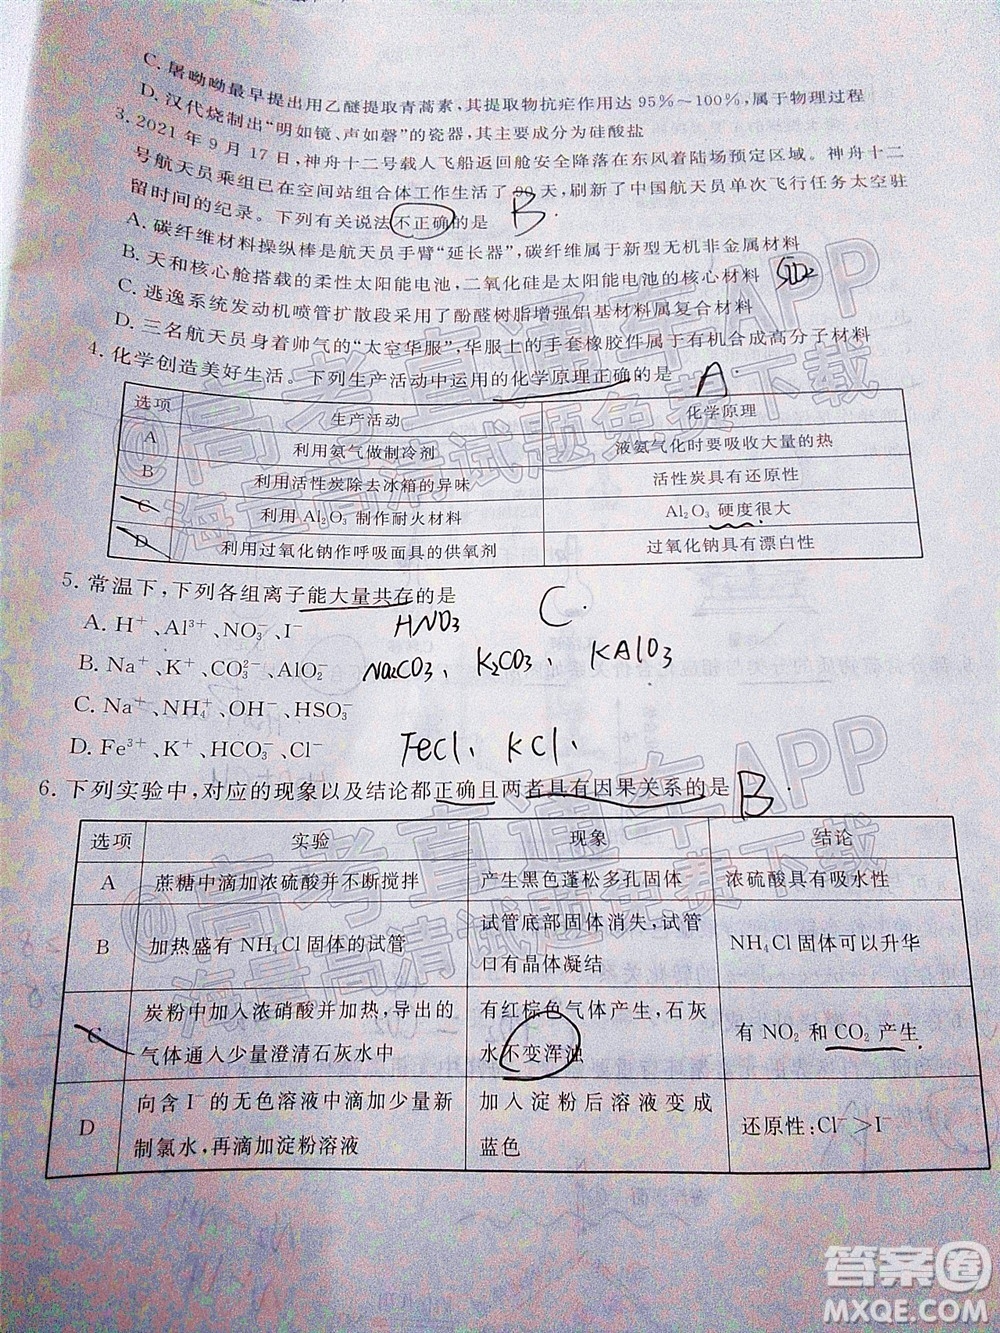 C. 屠呦呦最早提出用乙醚提取青蒿素,其提取物抗疟作用达 95%～100%,属于物理过程
D. 汉代烧制出“明如镜、声如磬”的瓷器,其主要成分为硅酸盐
3. 2021 年 9 月 17 日,神舟十二号载人飞船返回舱安全降落在东风着陆场预定区域。神舟十二
号航天员乘组已在空间站组合体工作生活了 90 天,刷新了中国航天员单次飞行任务太空驻
留时间的纪录。下列有关说法不正确的是 B
A. 碳纤维材料操纵棒是航天员手臂“延长器”,碳纤维属于新型无机非金属材料
B. 天和核心舱搭载的柔性太阳能电池,二氧化硅是太阳能电池的核心材料
C. 逃逸系统发动机喷管扩散段采用了酚醛树脂增强铝基材料属复合材料
D. 三名航天员身着帅气的“太空华服”,华服上的手套橡胶件属于有机合成高分子材料
4. 化学创造美好生活。下列生产活动中运用的化学原理正确的是 A
选项 生产活动 化学原理
A 利用氨气做制冷剂 液氨气化时要吸收大量的热
B 利用活性炭除去冰箱的异味 活性炭具有还原性
C 利用 Al₂O₃ 制作耐火材料 Al₂O₃ 硬度很大
D 利用过氧化钠作呼吸面具的供氧剂 过氧化钠具有漂白性
5. 常温下,下列各组离子能大量共存的是 C
A. H⁺、Al³⁺、NO₃⁻、I⁻ HNO₃
B. Na⁺、K⁺、CO₃²⁻、AlO₂⁻ Na₂CO₃、K₂CO₃、KAlO₃
C. Na⁺、NH₄⁺、OH⁻、HSO₃⁻
D. Fe³⁺、K⁺、HCO₃⁻、Cl⁻ FeCl、KCl、
6. 下列实验中,对应的现象以及结论都正确且两者具有因果关系的是 B
选项 实验 现象 结论
A 蔗糖中滴加浓硫酸并不断搅拌 产生黑色蓬松多孔固体 浓硫酸具有吸水性
B 加热盛有 NH₄Cl 固体的试管 试管底部固体消失,试管
口有晶体凝结 NH₄Cl 固体可以升华
C 炭粉中加入浓硝酸并加热,导出的
气体通入少量澄清石灰水中 有红棕色气体产生,石灰
水不变浑浊 有 NO₂ 和 CO₂ 产生
D 向含 I⁻ 的无色溶液中滴加少量新
制氯水,再滴加淀粉溶液 加入淀粉后溶液变成
蓝色 还原性:Cl⁻>I⁻
@高考直通车APP
海量高清试题免费下载
@高考直通车APP
海量高清试题免费下载
答案圈
MXQE.COM